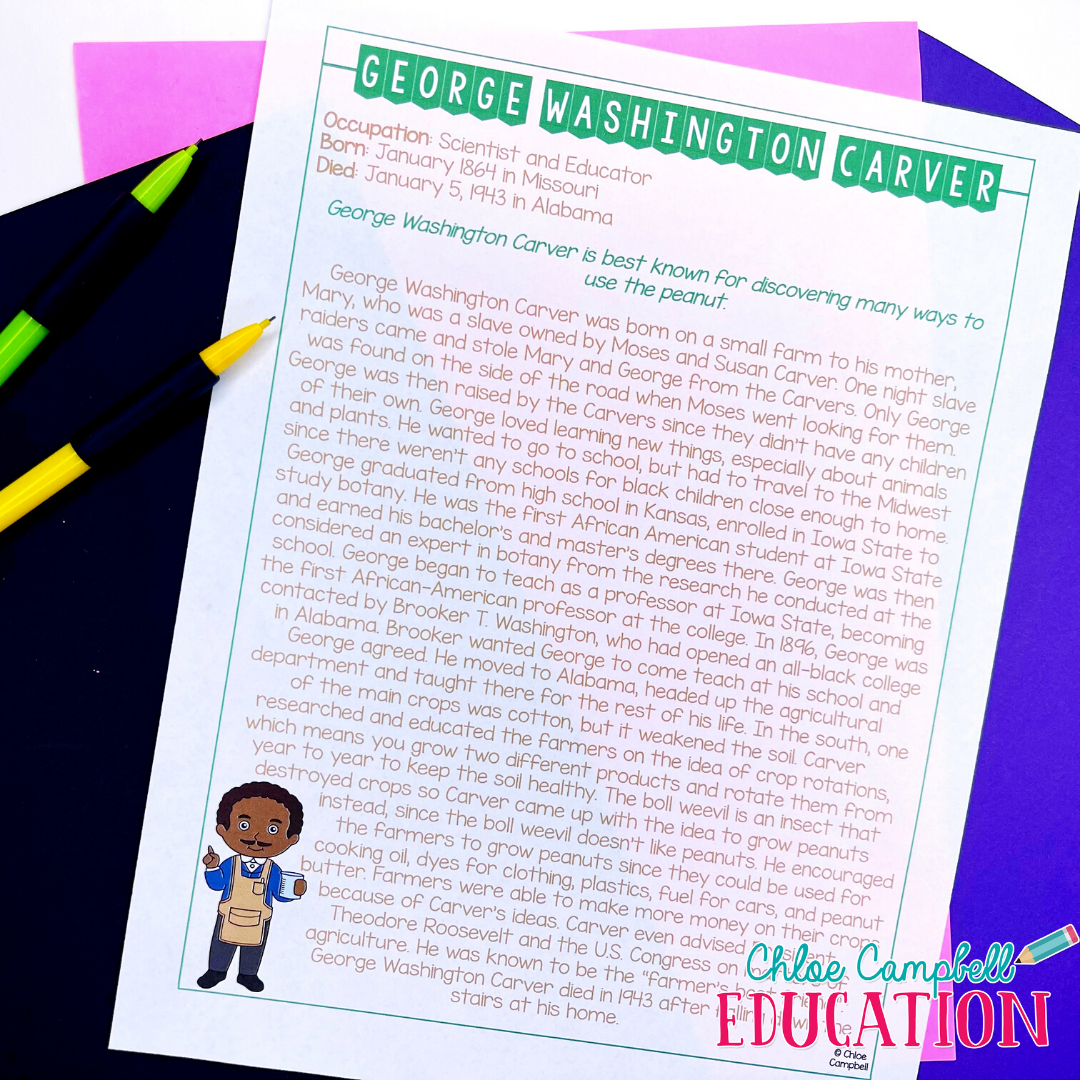 GEORGE WASHINGTON CARVER
Occupation: Scientist and Educator
Born: January 1864 in Missouri
Died: January 5, 1943 in Alabama
George Washington Carver is best known for discovering many ways to
use the peanut.
George Washington Carver was born on a small farm to his mother,
Mary, who was a slave owned by Moses and Susan Carver. One night slave
raiders came and stole Mary and George from the Carvers. Only George
was found on the side of the road when Moses went looking for them.
George was then raised by the Carvers since they didn't have any children
of their own. George loved learning new things, especially about animals
and plants. He wanted to go to school, but had to travel to the Midwest
since there weren't any schools for black children close enough to home.
George graduated from high school in Kansas, enrolled in Iowa State to
study botany. He was the first African American student at Iowa State
and earned his bachelor's and master's degrees there. George was then
considered an expert in botany from the research he conducted at the
school. George began to teach as a professor at Iowa State, becoming
the first African-American professor at the college. In 1896, George was
contacted by Brooker T. Washington, who had opened an all-black college
in Alabama. Brooker wanted George to come teach at his school and
George agreed. He moved to Alabama, headed up the agricultural
department and taught there for the rest of his life. In the south, one
of the main crops was cotton, but it weakened the soil. Carver
researched and educated the farmers on the idea of crop rotations,
which means you grow two different products and rotate them from
year to year to keep the soil healthy. The boll weevil is an insect that
destroyed crops so Carver came up with the idea to grow peanuts
instead, since the boll weevil doesn't like peanuts. He encouraged
the farmers to grow peanuts since they could be used for
cooking oil, dyes for clothing, plastics, fuel for cars, and peanut
butter. Farmers were able to make more money on their crops
because of Carver's ideas. Carver even advised President
Theodore Roosevelt and the U.S. Congress on
agriculture. He was known to be the "farmer's best
George Washington Carver died in 1943 after falling down the
stairs at his home.
Chloe Campbell
EDUCATION
© Chloe
Campbell